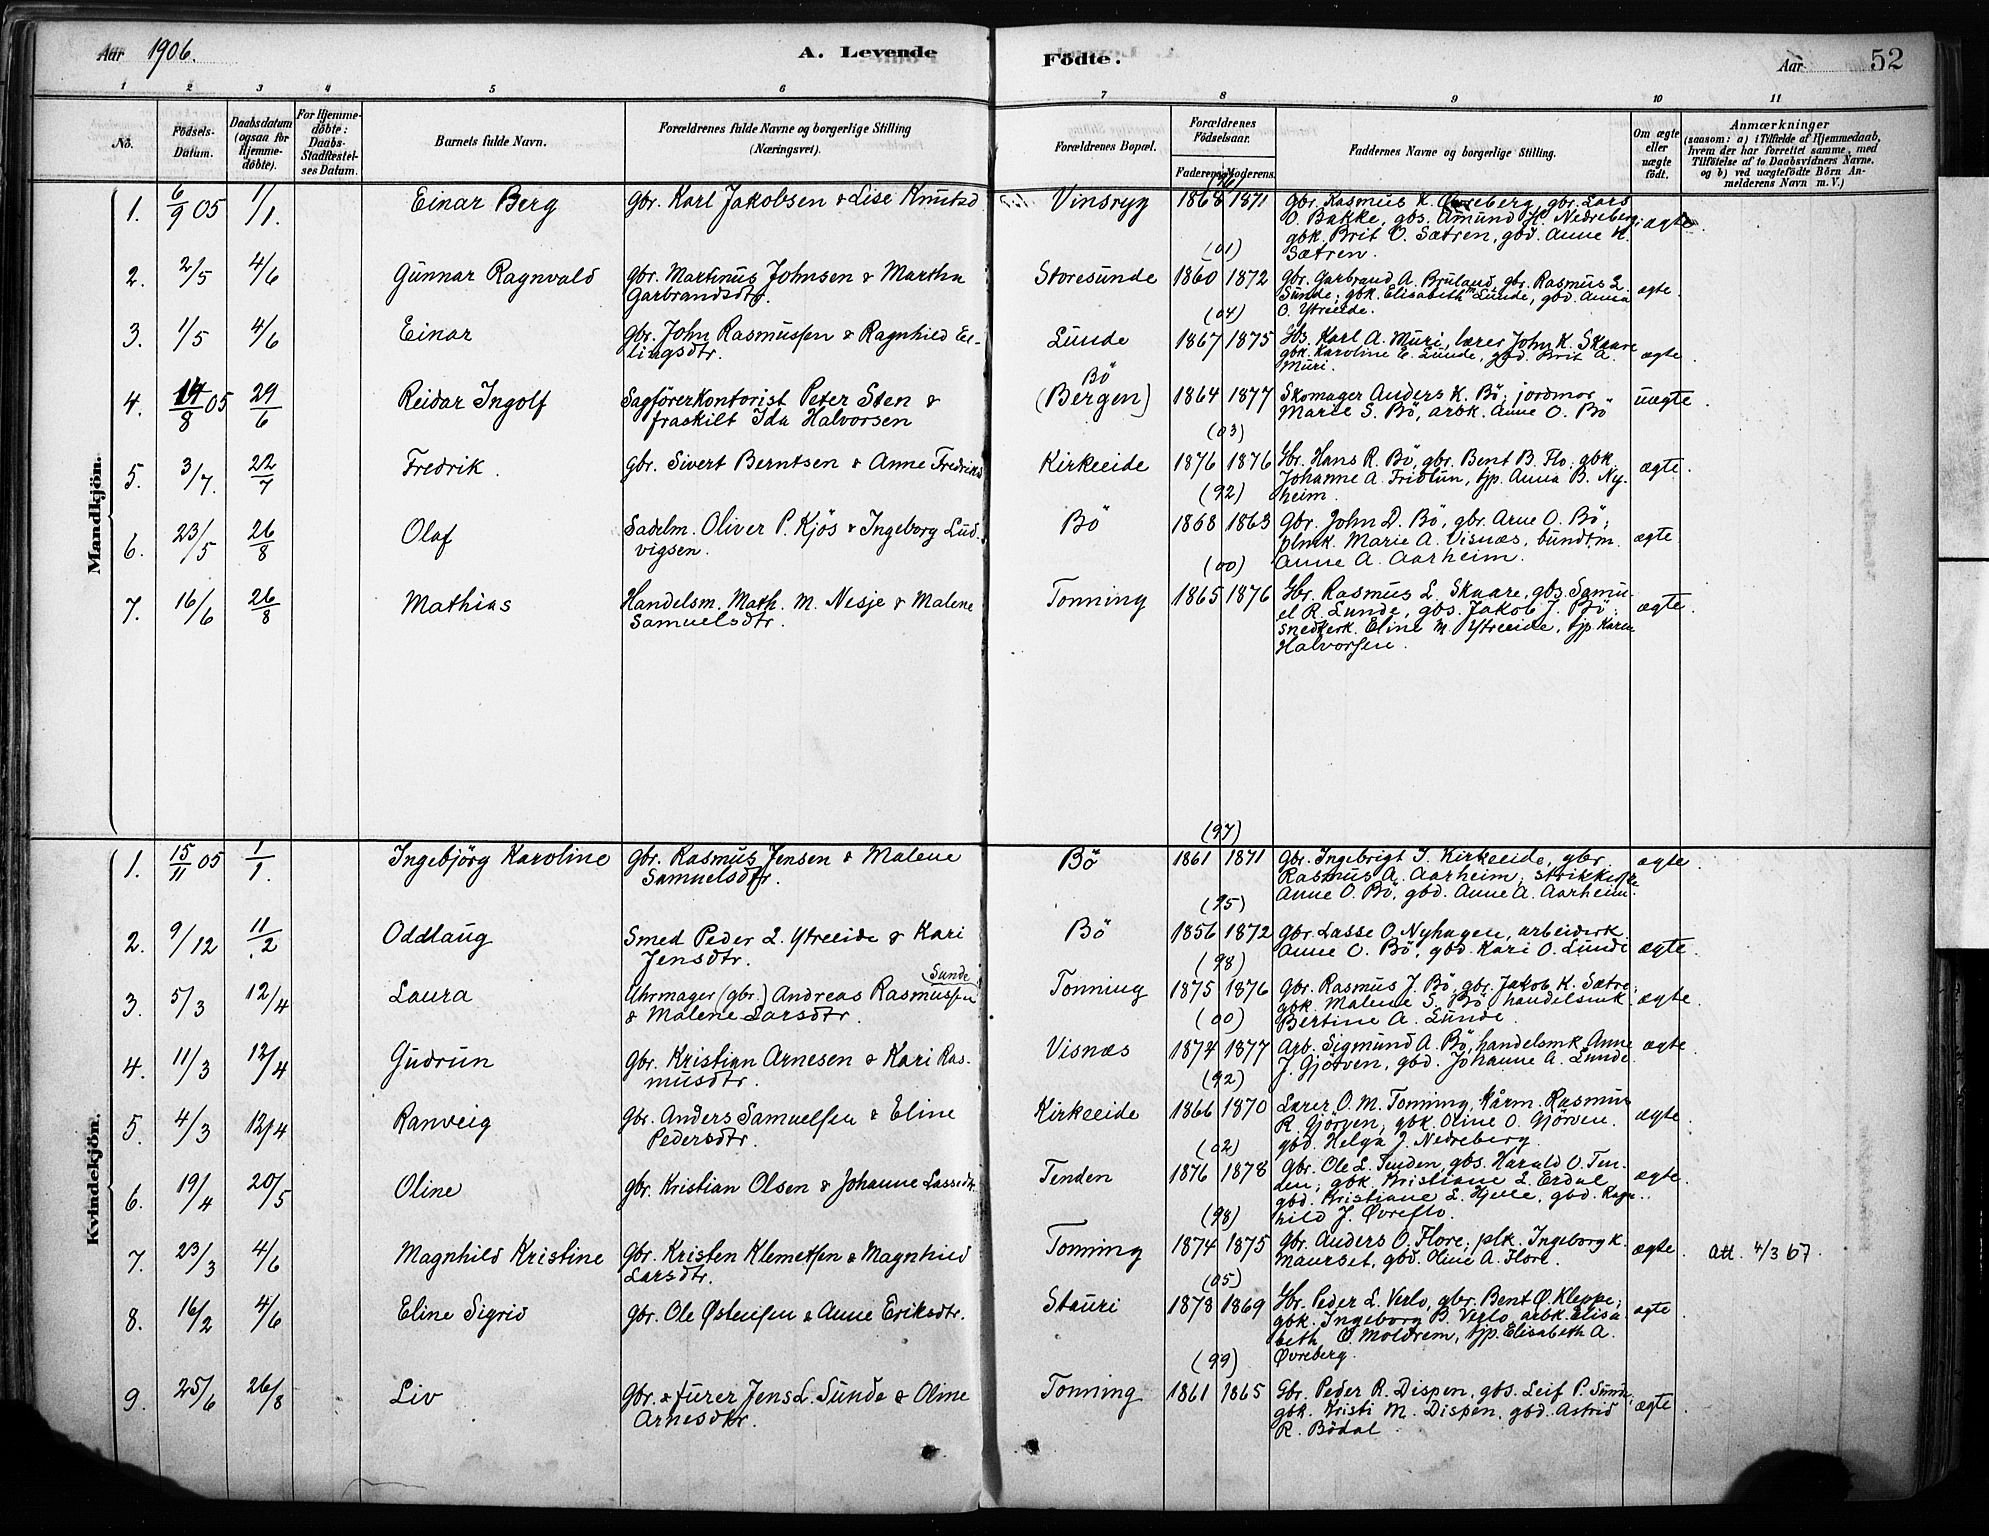 Aar 1906. A. Levende Födte. Aar 52
1 2 3 4 5 6 7 8 9 10 11
No. Födsels-Datum. Daabsdatum (ogsaa for Hjemme-döbte). For Hjemme-döbte: Daabs-Stadfæstel-ses Datum. Barnets fulde Navn. Forældrenes fulde Navne og borgerlige Stilling (Næringsvei). Forældrenes Bopæl. Forældrenes Födselsaar. Faderens. Moderens. Faddernes Navne og borgerlige Stilling. Om ægte eller uægte födt. Anmærkninger (saasom: a) i Tilfælde af Hjemmedaab, hvem der har forrettet samme, med Tilföielse af to Daabsvidners Navne, og b) ved uægtefödte Börn An-melderens Navn m. V.)
Mandkjön.
1. 6/9 05 1/1. Einar Berg Gbr. Karl Jakobsen & Lise Knutsd Vinsryg (96) 1868 1871 Gbr. Rasmus K. Øvreberg, gbr. Lars
O. Bakke, gbs. Amund H. Nedreberg; ægte.
gbk. Brit O. Sætren, gbd. Anne K.
Sætren.
2. 2/5 4/6 Gunnar Ragnvald Gbr. Martinus Johnsen & Martha Storesunde (01) 1860 1872 Gbr. Garbrand A. Bruland, gbr. Rasmus L.
Garbrandsdtr. Sunde; gbk. Elisabeth Sunde, gbd. Anna ægte.
O. Ytreeide.
3. 1/5 4/6 Einar Gbr. John Rasmussen & Ragnhild Er- Lunde (04) 1867 1875 Gbs. Karl A. Muri, lærer John K. Skaare
lingsdtr. gbk. Karoline E. Lunde, gbd. Brit A. ægte.
Muri.
4. 14/8 05 29/6 Reidar Ingolf Sagförerkontorist Peter Steen & Bö (Bergen) 1864 1877 Skomager Anders K. Bö; jordmor uægte.
fraskilt Ida Halvorsen Marie S. Bö, arbk. Anne O. Bö
5. 3/7. 22/7 Fredrik. Gbr. Sivert Berntsen & Anne Fredriksd Kirkeeide (03) 1876 1876 Gbr. Hans R. Bö, gbr. Bent B. Flo; gbk. ægte.
Johanne A. Fridlun, tjp. Anna B. Ny-
heim.
6. 23/5 26/8 Olaf Sadelm. Oliver P. Kjös & Ingeborg Lud- Bö (92) 1868 1863 Gbr. John D. Bö, gbr. Arne O. Bö; ægte
vigsen. plmk. Marie A. Visnæs, bundtm.
Anne A. Aarheim.
7. 16/6 26/8 Mathias Handelsm. Math. M. Nesje & Malene Tonning (00) 1865 1876 Gbr. Rasmus L. Skaare, gbs. Samu-
Samuelsdtr. el R. Lunde, gbs. Jakob J. Bö; ægte.
snedkerk. Eline M. Ytreeide, tjp. Karen
Halvorsen.
Kvindekjön.
1. 15/11 05 1/1. Ingebjörg Karoline Gbr. Rasmus Jensen & Malene Bö (97) 1861 1871 Gbr. Ingebrigt I. Kirkeeide, gbr. ægte.
Samuelsdtr. Rasmus A. Aarheim;
Anne O. Bö, gbd. Anne A. Aarheim.
2. 9/12 11/2 Oddlaug Smed Peder L. Ytreeide & Kari Bö (95) 1856 1872 Gbr. Lasse O. Nyhagen, arbeiderk.
Jensdtr. Anne O. Bö, gbd. Kari O. Lunde ægte.
3. 5/3 12/4 Laura Uhrmager (gbr.) Andreas Rasmussen Sunde Tonning (98) 1875 1876 Gbr. Rasmus J. Bö, gbr. Jakob K. Sætre;
& Malene Larsdtr. gbk. Malene S. Bö, handelsmk. ægte.
Bertine A. Lunde.
4. 11/3 12/4 Gudrun Gbr. Kristian Arnesen & Kari Ras- Visnæs (00) 1874 1877 Arb. Sigmund A. Bö, handelsmk. Anne ægte.
musdtr. J. Gjörven, gbd. Johanne A. Lunde.
5. 4/3 12/4 Ranveig Gbr. Anders Samuelsen & Eline Kirkeeide (92) 1866 1870 Lærer O. M. Tonning, kårm. Rasmus
Pedersdtr. R. Gjörven, gbk. Oline O. Gjörven. ægte.
gbd. Helga J. Nedreberg.
6. 19/4 20/5 Oline Gbr. Kristian Olsen & Johanne Lassedtr. Tenden (02) 1876 1878 Gbr. Ole L. Tenden, gbs. Harald O. Ten-
den; gbk. Kristiane L. Erdal ægte.
gbd. Kristiane L. Hjelle, gbd. Ragn-
hild J. Øvreflo.
7. 23/3 4/6 Magnhild Kristine Gbr. Kristen Klemetsen & Magnhild Tonning (98) 1874 1875 Gbr. Anders O. Flore; plk. Ingeborg K. ægte. att. 4/3 67.
Larsdtr. Maurset, gbd. Oline A. Flore.
8. 16/2 4/6 Eline Sigrid Gbr. Ole Østensen & Anne Eriksdtr. Stauri (05) 1878 1869 Gbr. Peder L. Verlo, gbr. Bent Ø. Kleppe; ægte
gbk. Ingeborg B. Verlo, arbk. Elisa-
beth O. Moldrem, tjp. Elisabeth A.
Øvreberg.
9. 25/6 26/8 Liv Gbr. & furer Jens L. Sunde & Oline Tonning (99) 1861 1865 Gbr. Peder R. Dispen, gbs. Leif P. Sunde;
Arnesdtr. gbk. Kristi M. Dispen, gbd. Astrid ægte.
R. Bödal.